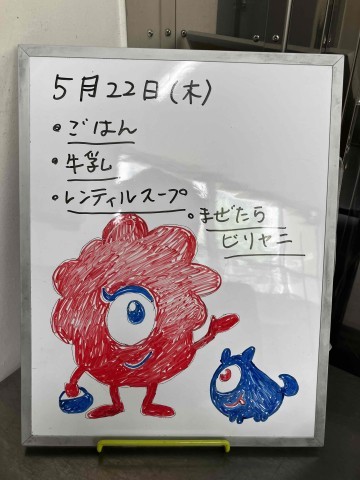 5月22日(木)
・ごはん
・牛乳
・レンティルスープ
・まぜたら
ビリヤニ